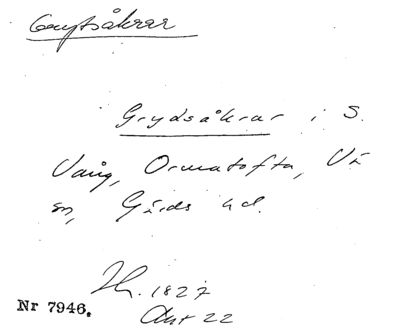 Grytsåkrar
Grydsåkrar i S.
Vång, Ormatofta, Vä
sn, Gärds hd.
Lh. 1827
Akt 22
Nr 7946.